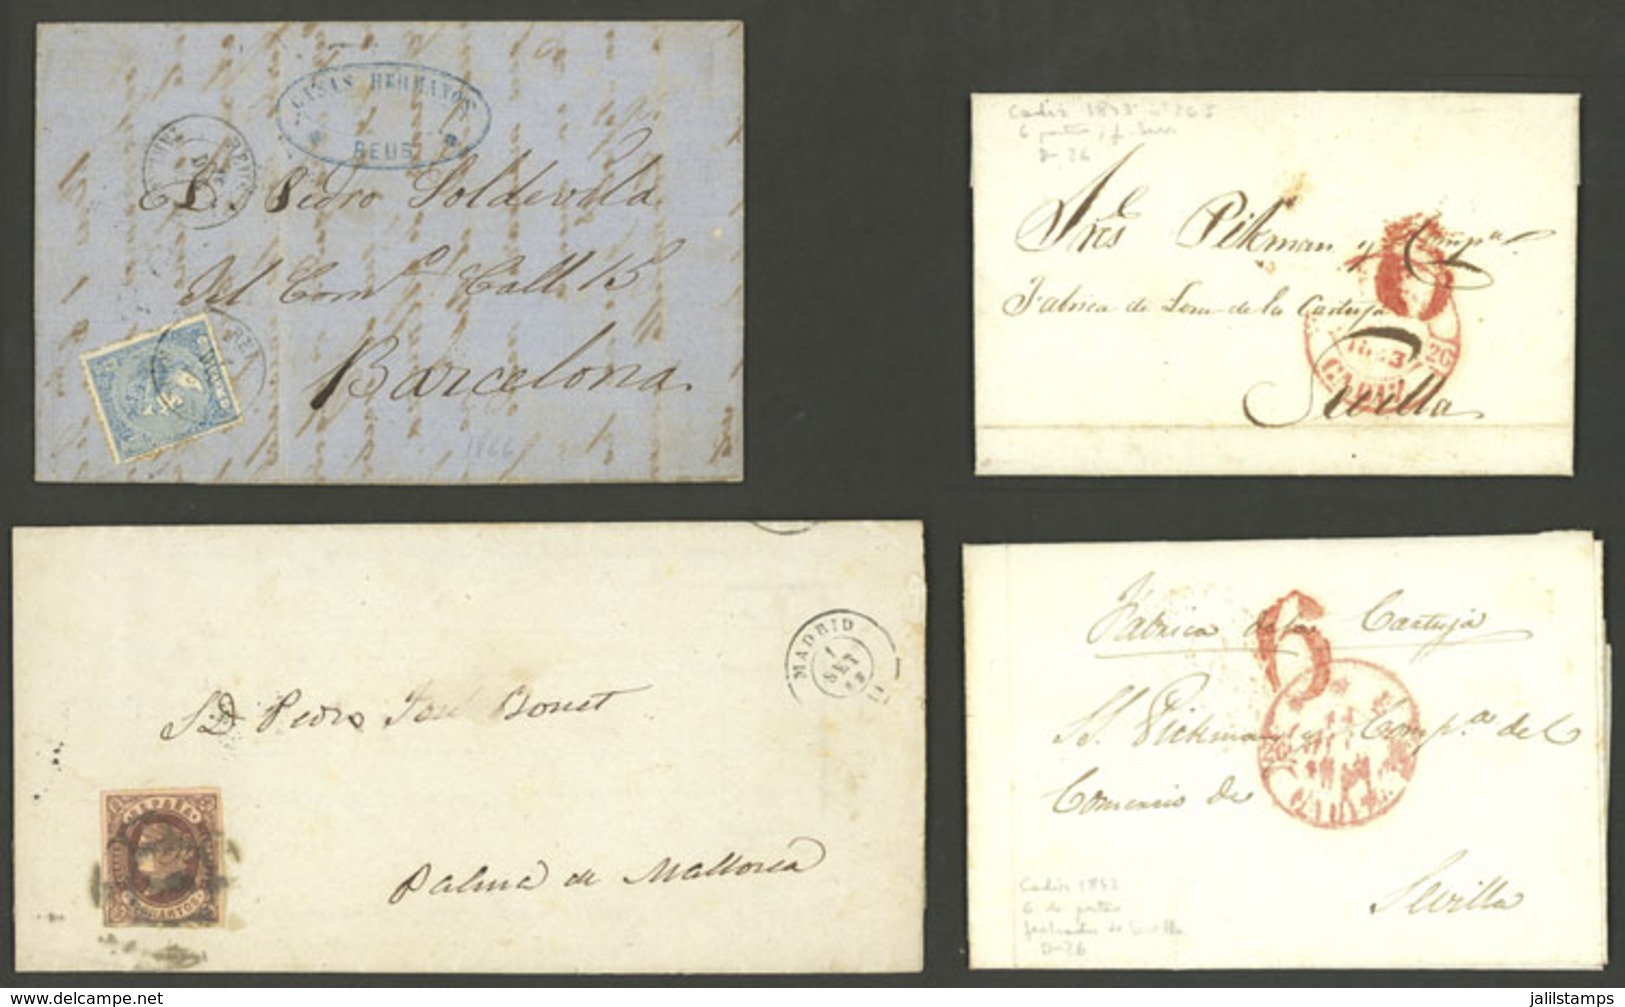 CASAS HERMANOS
REUS
D. Pedro Soldevila
del Com.º Call 15
Barcelona
1866
Cadiz 1843 nº 265
D-26
Sres Pikman y Compª
Fabrica de Losa de la Cartuja
6
26
CADIZ
Sevilla
MADRID
1
SET
S D Pedro José Bonet
ESPAÑA
CUARTOS
Palma de Mallorca
Fabrica de la Cartuja
6
SS. Pickman y Compª del
Comercio de
26
CADIZ
Sevilla
Cadiz 1842
6 de porteo
fechador de Sevilla
D-26
www.delcampe.net
jalilstamps